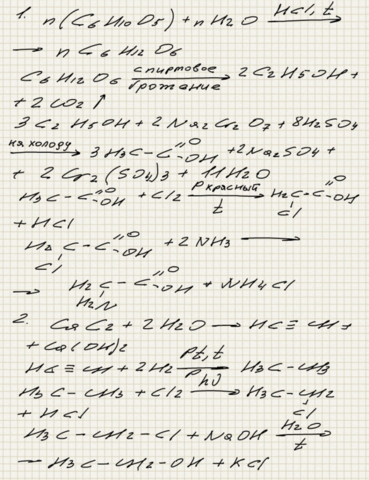 1. n(C6H10O5) + nH2O HCl, t →
→ nC6H12O6
C6H12O6 спиртовое брожание → 2C2H5OH +
+ 2CO2↑
3C2H5OH + 2Na2Cr2O7 + 8H2SO4
на холоду → 3H3C-C(=O)OH + 2Na2SO4 +
+ 2Cr2(SO4)3 + 11H2O
H3C-C(=O)OH + Cl2 P красный, t → H2C(Cl)-C(=O)OH
+ HCl
H2C(Cl)-C(=O)OH + 2NH3 →
→ H2C(H2N)-C(=O)OH + NH4Cl
2. CaC2 + 2H2O → HC≡CH +
+ Ca(OH)2
HC≡CH + 2H2 Pt, t → H3C-CH3
H3C-CH3 + Cl2 hυ → H3C-CH2(Cl)
+ HCl
H3C-CH2-Cl + NaOH H2O, t →
→ H3C-CH2-OH + KCl